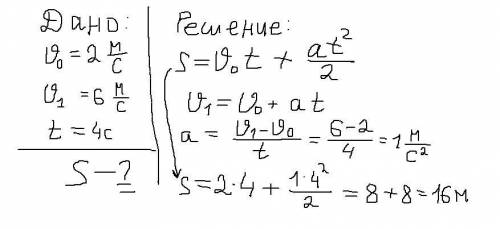 Дано:
υ₀ = 2 м/с
υ₁ = 6 м/с
t = 4с
S – ?
Решение:
S = υ₀t + at²/2
υ₁ = υ₀ + at
a = υ₁–υ₀/t = 6–2/4 = 1 м/с²
S = 2·4 + 1·4²/2 = 8+8 = 16м